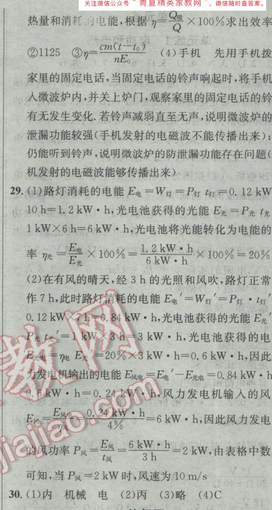 热量和消耗的电能,根据η=Q吸/Q×100%求出效率
②1125 ③η=cm(t-t₀)/nE₀ (4)手机 先用手机拨
家里的固定电话,当固定电话的铃声响起时,将手机放
入微波炉内,并关上炉门,观察家里的固定电话的铃声
有无发生变化.若铃声减弱直至无声,说明微波炉的防
泄漏功能较强(手机发射的电磁波不能传播出来);若
仍能听到铃声,说明微波炉的防泄漏功能存在问题(手
机发射的电磁波能够传播出来)
29.(1)路灯消耗的电能E电=W灯=P灯t灯=0.12 kW×
10 h=1.2 kW·h,光电池获得的光能E光=P光t光=
1 kW×6 h=6 kW·h,光电池将光能转化为电能的效
率η光=E电/E光×100%=1.2 kW·h/6 kW·h×100%=20%
(2)在有风的晴天,经3 h的光照和风吹,路灯正常工
作7 h,此时路灯消耗的电能E电′=W灯′=P灯·t灯′=
0.12 kW×7 h=0.84 kW·h,光电池获得的电能
×3 h=3 kW·h,光电池获得的电
=20%×3 kW·h=0.6 kW·h,因此风
力发电机输出的电能E风电=E电′-E光电=0.84 kW·h-
0.6 kW·h=0.24 kW·h,风力发电机输入的风能
E风=0.24 kW·h/4%=6 kW·h,因此风力发电机
的风功率P风=E风/t风=6 kW·h/3 h=2 kW,由表格中数据
可知,当P风=2 kW时,风速为10 m/s
30.(1)内 机械 电 (2)丙 (3)略 (4)C